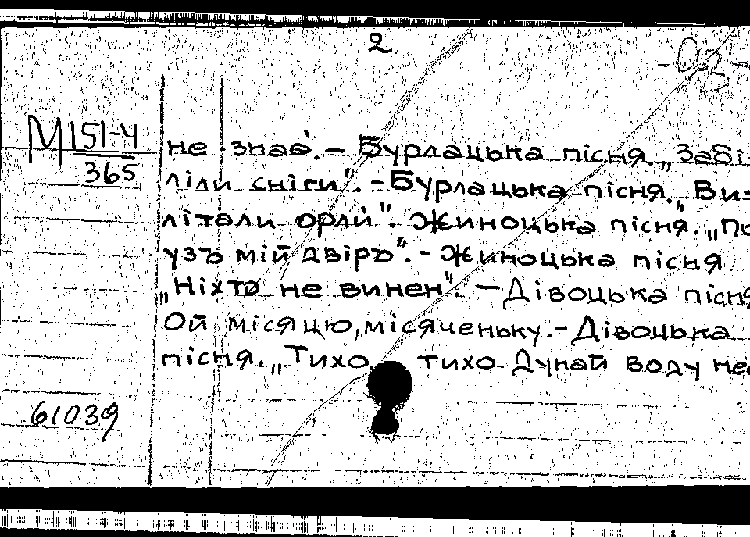 2
-03-
М151-4
365
не знає". – Бурлацька пісня. „Забі-
ліли сніги". – Бурлацька пісня. „Ви-
літали орли". Жиноцька пісня. „По
узъ мій двіръ". – Жиноцька пісня
„Ніхто не винен". – Дівоцька пісня
Ой місяцю, місяченьку. – Дівоцька
пісня. „Тихо тихо Дунай воду не
61039